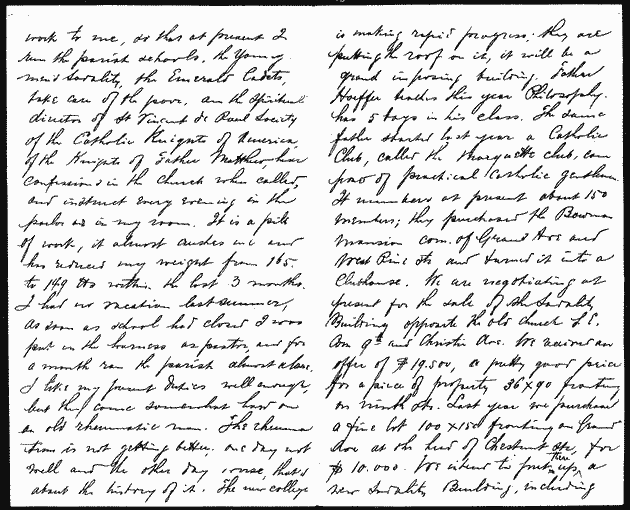 work to me, so that at present I
run the parish schools, the Young
men's Sodality, the Emerald Cadets,
take care of the poor, am the Spiritual
director of St Vincent de Paul Society
of the Catholic Knights of America,
of the Knights of Father Matthew, hear
confessions in the church when called,
and instruct every evening in the
parlor or in my room. It is a pile
of work, it almost crushes me and
has reduced my weight from 165
to 149 lbs within the last 3 months.
I had no vacation last summer,
as soon as school had closed I was
put in the harness as pastor, and for
a month ran the parish almost alone.
I like my present duties well enough,
but they come somewhat hard on
an old rheumatic man. The rheuma
tism is not getting better. one day not
well and the other day worse, that's
about the history of it. The new college
is making rapid progress; they are
putting the roof on it, it will be a
grand imposing building. Father
Hoeffer teaches this year Philosophy.
has 5 boys in his class. The same
father started last year a Catholic
Club, called the Marquette club, com
posed of practical Catholic gentlemen.
It numbers at present about 150
members; they purchased the Bowman
mansion corn. of Grand Ave and
West Pine Str and turned it into a
Clubhouse. We are negotiating at
present for the sale of the Sodality
Building opposite the old church S. E.
Corn 9th and Christie Ave. We received an
offer of $19.500, a pretty good price
for a piece of property 36 x 90 fronting
on ninth Str. Last year we purchased
a fine lot 100 x 150 fronting on Grand
Ave at the head of Chestnut Str, for
$10.000. We intend to put up there a
new Sodality Building, including